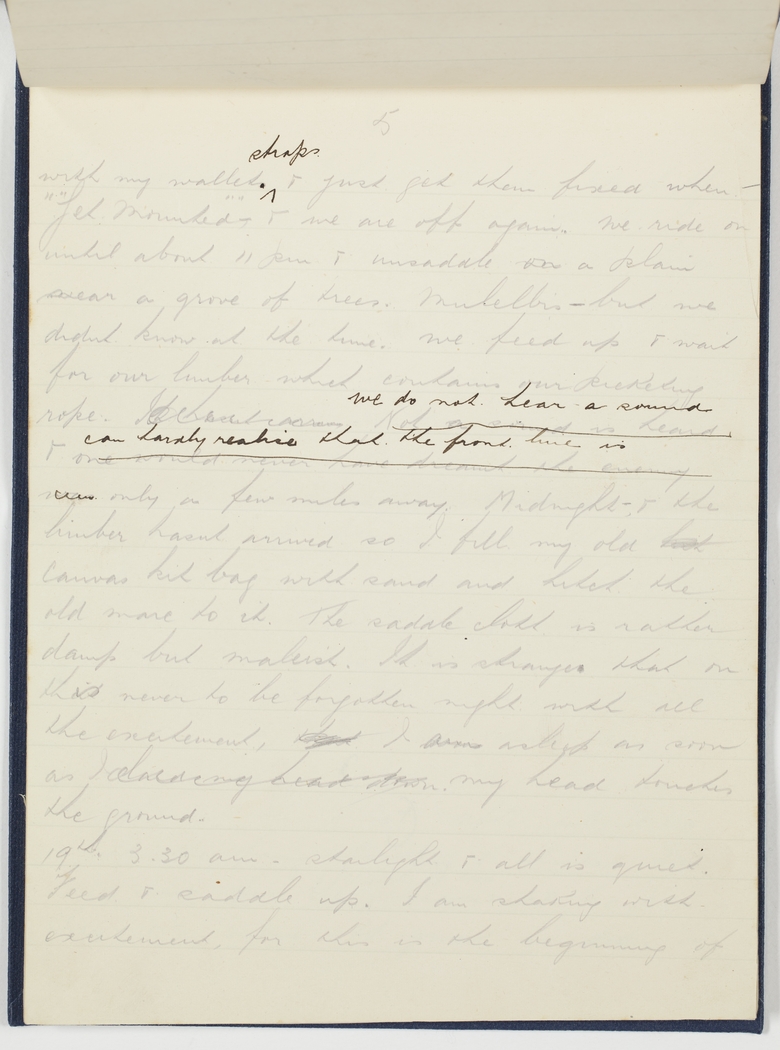 5
straps
with my wallet. & just get them fixed when -
"Get Mounted" - & we are off again. We ride on
until about 11 pm & unsaddle on a plain
near a grove of trees. Mulebbis - but we
didnt know at the time. We feed up & wait
for our limber which contains our picketing
we do not hear a sound
rope. Not a sound is heard
can hardly realise that the front line is
& one would never have dreamt the enemy
was only a few miles away. Midnight - & the
limber hasnt arrived so I fill my old
canvas kit bag with sand and hitch the
old mare to it. The saddle cloth is rather
damp but maleish. It is strange that on
this never to be forgotten night with all
the excitement, I am asleep as soon
as I my head touches
the ground.
19th. 3.30 am - starlight & all is quiet.
Feed & saddle up. I am shaking with
excitement, for this is the beginning of